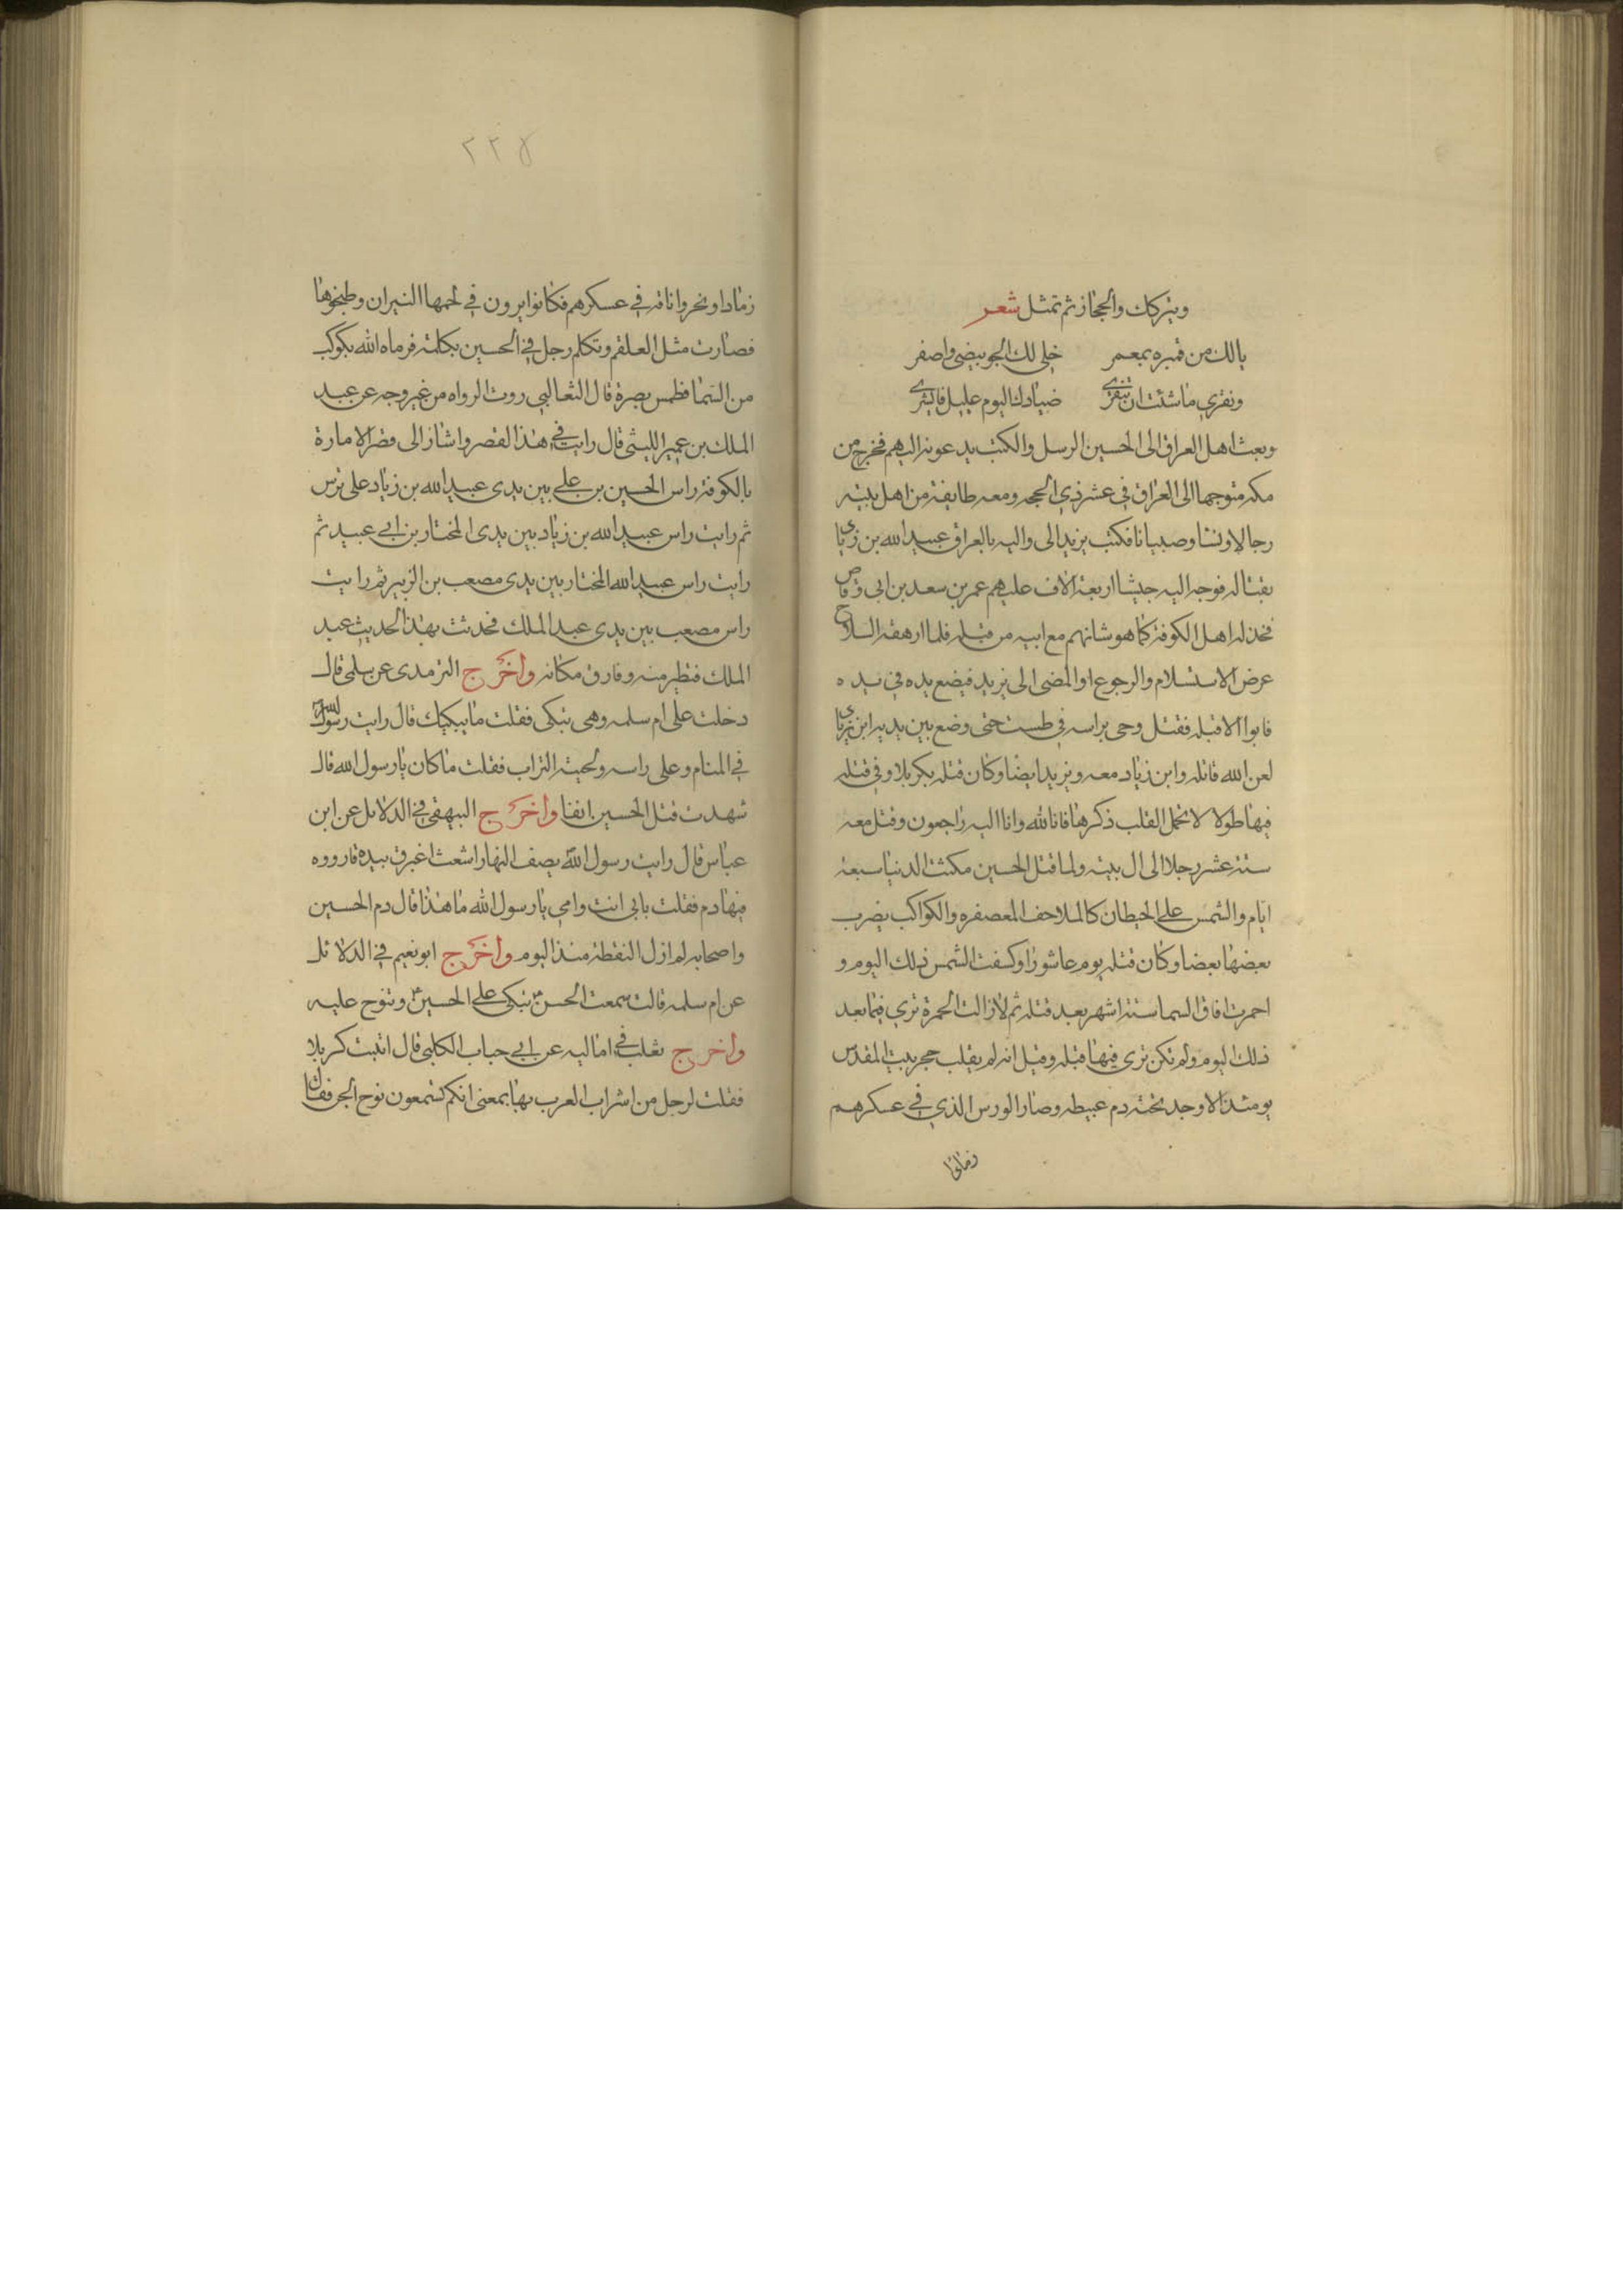 ويتركك والحجاز ثم تمثل شعر
يالك من قمبره بمعمر خلى لك الجو بيضى واصفر
ونقري ما شئت ان تنقري صيادك اليوم عليل فابشري
وبعث اهل العراق الى الحسين الرسل والكتب يدعونه اليهم فخرج من
مكه متوجها الى العراق في عشر ذي الحجه ومعه طايفة من اهل بيته
رجالا ونسا وصبيانا فكتب يزيد الى واليه بالعراق عبيد الله بن زياد
بقتاله فوجه اليه جيشا اربعة الاف عليهم عمر بن سعد بن ابى وقاص
فخذله اهل الكوفة كما هو شانهم مع ابيه من قبله فلما ارهقه السلاح
عرض الاستسلام والرجوع او المضى الى يزيد فيضع يده في يده
فابوا الا قتله فقتل وجى براسه في طست حتى وضع بين يديه ابن زياد
لعن الله قاتله وابن زياد معه ويزيد ايضا وكان قتله بكربلا وفي قتله
فيها طولا لا تحمل القلب ذكرها فانا لله وانا اليه راجعون وقتل معه
ستة عشر رجلا الى ال بيته ولما قتل الحسين مكثت الدنيا سبعة
ايام والشمس على الحيطان كالملاحف المعصفره والكواكب يضرب
بعضها بعضا وكان قتله يوم عاشورا وكسفت الشمس ذلك اليوم و
احمرت افاق السما ستة اشهر بعد قتله ثم لا زالت الحمرة ترى فيما بعد
ذلك اليوم ولم تكن ترى فيها قبله وقيل انه لم يقلب حجر ببيت المقدس
يومئذ الا وجد تحته دم عبيطه وصار الورس الذي في عسكرهم
رمادا
٢٢٥
رمادا ونحروا ناقة في عسكرهم فكانوا يرون في لحمها النيران وطبخوها
فصارت مثل العلقم وتكلم رجل في الحسين بكلمة فرماه الله بكوكب
من السما فطمس بصرة قال الثعالبي روت الرواه من غير وجه عن عبد
الملك بن عمير الليثى قال رايت في هذا القصر واشار الى قصر الامارة
بالكوفة راس الحسين بن على بين يدى عبيد الله بن زياد على ترس
ثم رايت راس عبيد الله بن زياد بين يدى المختار بن ابى عبيد ثم
رايت راس عبيد الله المختار بين يدى مصعب بن الزبير ثم رايت
راس مصعب بين يدى عبد الملك فحدثت بهذا الحديث عبد
الملك فتطير منه وفارق مكانه واخرج الترمدى عن سلمى قال
دخلت على ام سلمه وهى تبكى فقلت ما يبكيك قال رايت رسول الله
في المنام وعلى راسه ولحيته التراب فقلت ما كان يا رسول الله قال
شهدت قتل الحسين انفا واخرج البيهقى في الدلايل عن ابن
عباس قال رايت رسول الله بصف النهار اشعث اغبر في بيده قاروره
فيها دم فقلت بابى انت وامى يا رسول الله ما هذا قال دم الحسين
واصحابه لم ازل النقطة منذ اليوم واخرج ابو نعيم في الدلائل
عن ام سلمه قالت سمعت الحسن تبكى على الحسين وتنوح عليه
واخرج ثعلب في اماليه عن ابى حباب الكلبى قال اتيت كربلا
فقلت لرجل من اشراب العرب بها بمعنى انكم تسمعون نوح الجن فقال